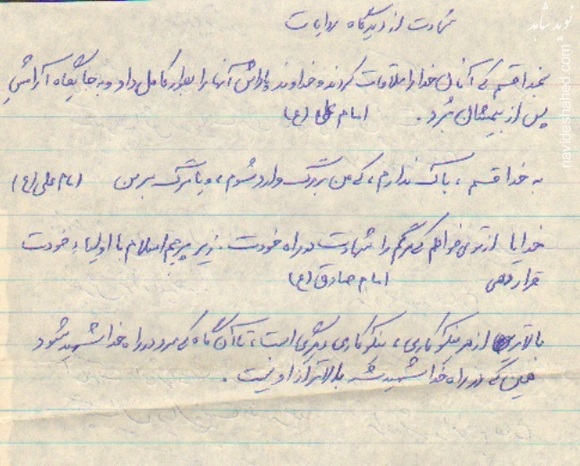 شهادت از دیدگاه روایات
بخدا قسم که آنان خدا را ملاقات کردند و خداوند پاداش آنها را بطور کامل داد و در جایگاه آرامش
پس از بیمشان بُرد. امام علی (ع)
به خدا قسم، باک ندارم، که من بر مرگ وارد شوم، و یا مرگ بر من (امام علی (ع)
خدایا از تو می خواهم که مرگم را شهادت در راه خودت. زیر پرچم اسلام با اولیاء خودت
قرار دهی امام صادق (ع)
بالاتر از هر نیکوکاری، نیکوکاری دیگری است، تا آن گاه که مرد در راه خدا شهید شود
همین که در راه خدا شهید شد بالاتر از او نیست.
نوید شاهد
navideshahed.com